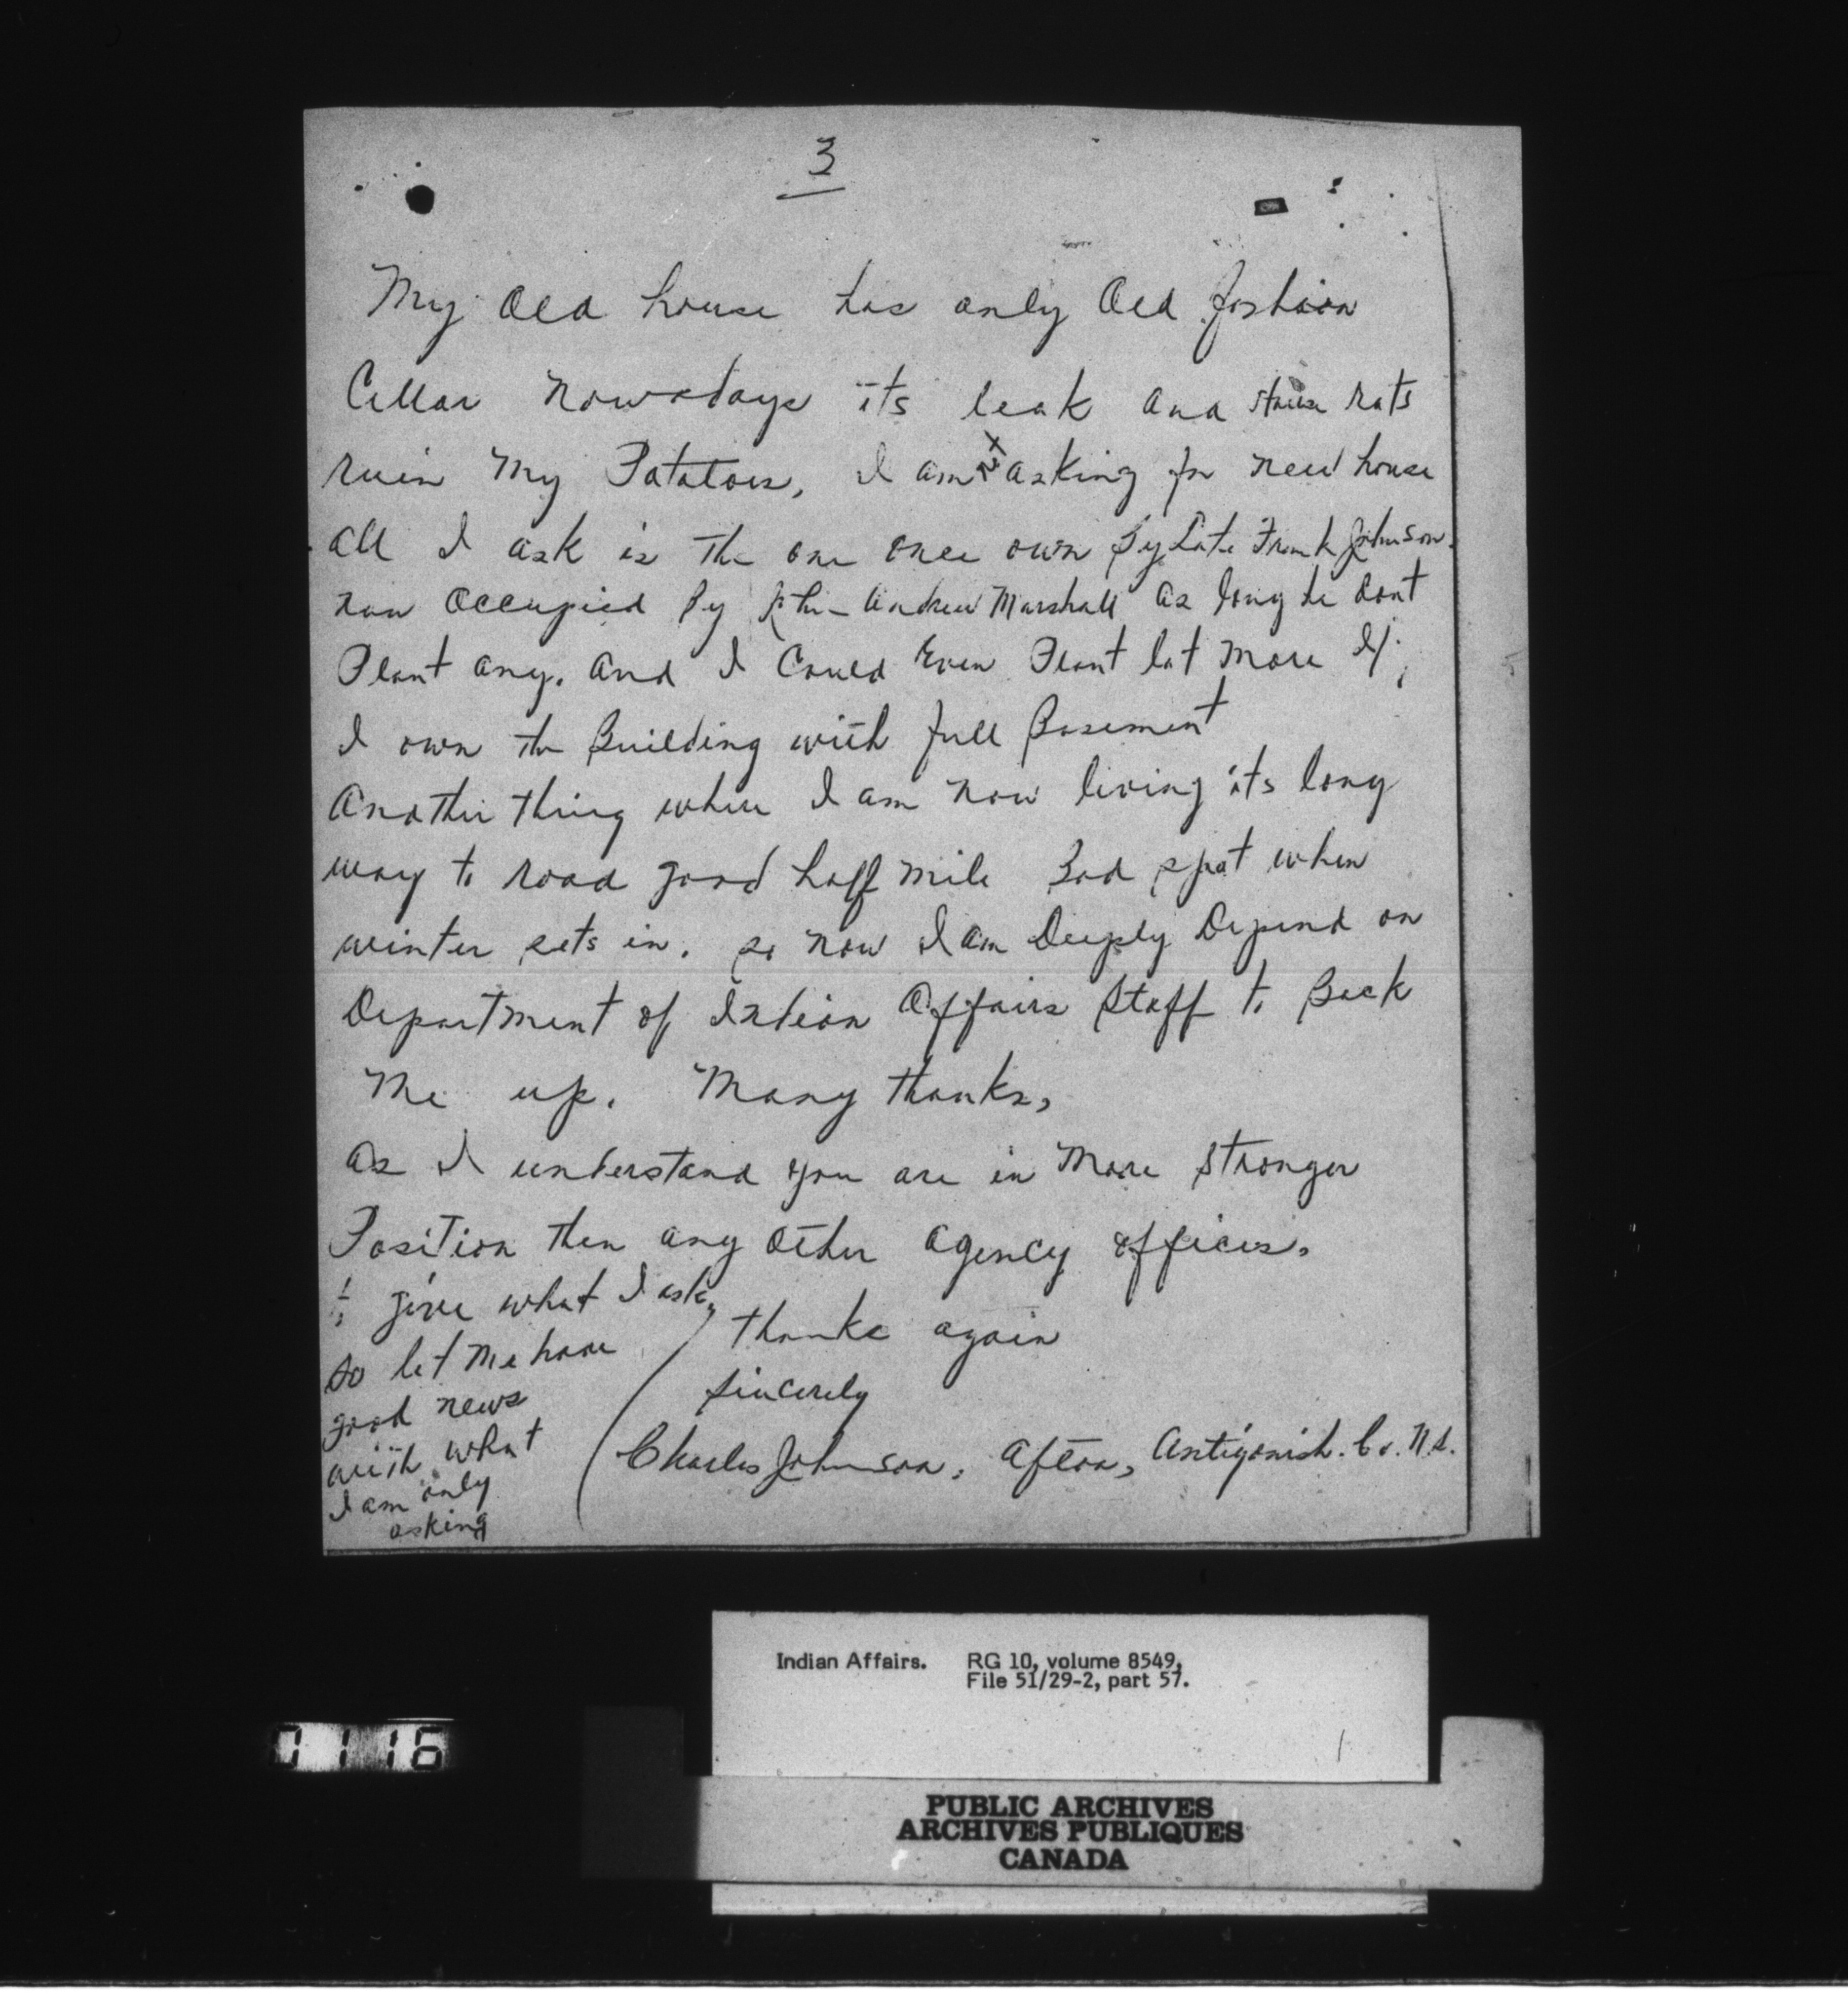 3
My Old house has only Old foshion
Cellar Nowadays its leak and rats
ruin My Potatoes, I am not asking for new house
all I ask is the one once own By Late Frank Johnson.
now Occupied By John Andrew Marshall as long he dont
Plant any. and I Could Even Plant lot more If,
I own the Building with full Basement
Another thing where I am now living its long
way to road good half mile Bad spot when
winter sets in. so now I am Deeply Depend on
Department of Indian Affairs Staff to Back
Me up. Many thanks,
as I understand you are in More Stronger
Position then any other agency offices.
to give what I ask,
so let me have
good news
with what
I am only
asking
thanks again
Sincerely
Charles Johnson, Afton, Antigonish. Co. N.S.
Indian Affairs. RG 10, volume 8549,
File 51/29-2, part 57.
01116
PUBLIC ARCHIVES
ARCHIVES PUBLIQUES
CANADA